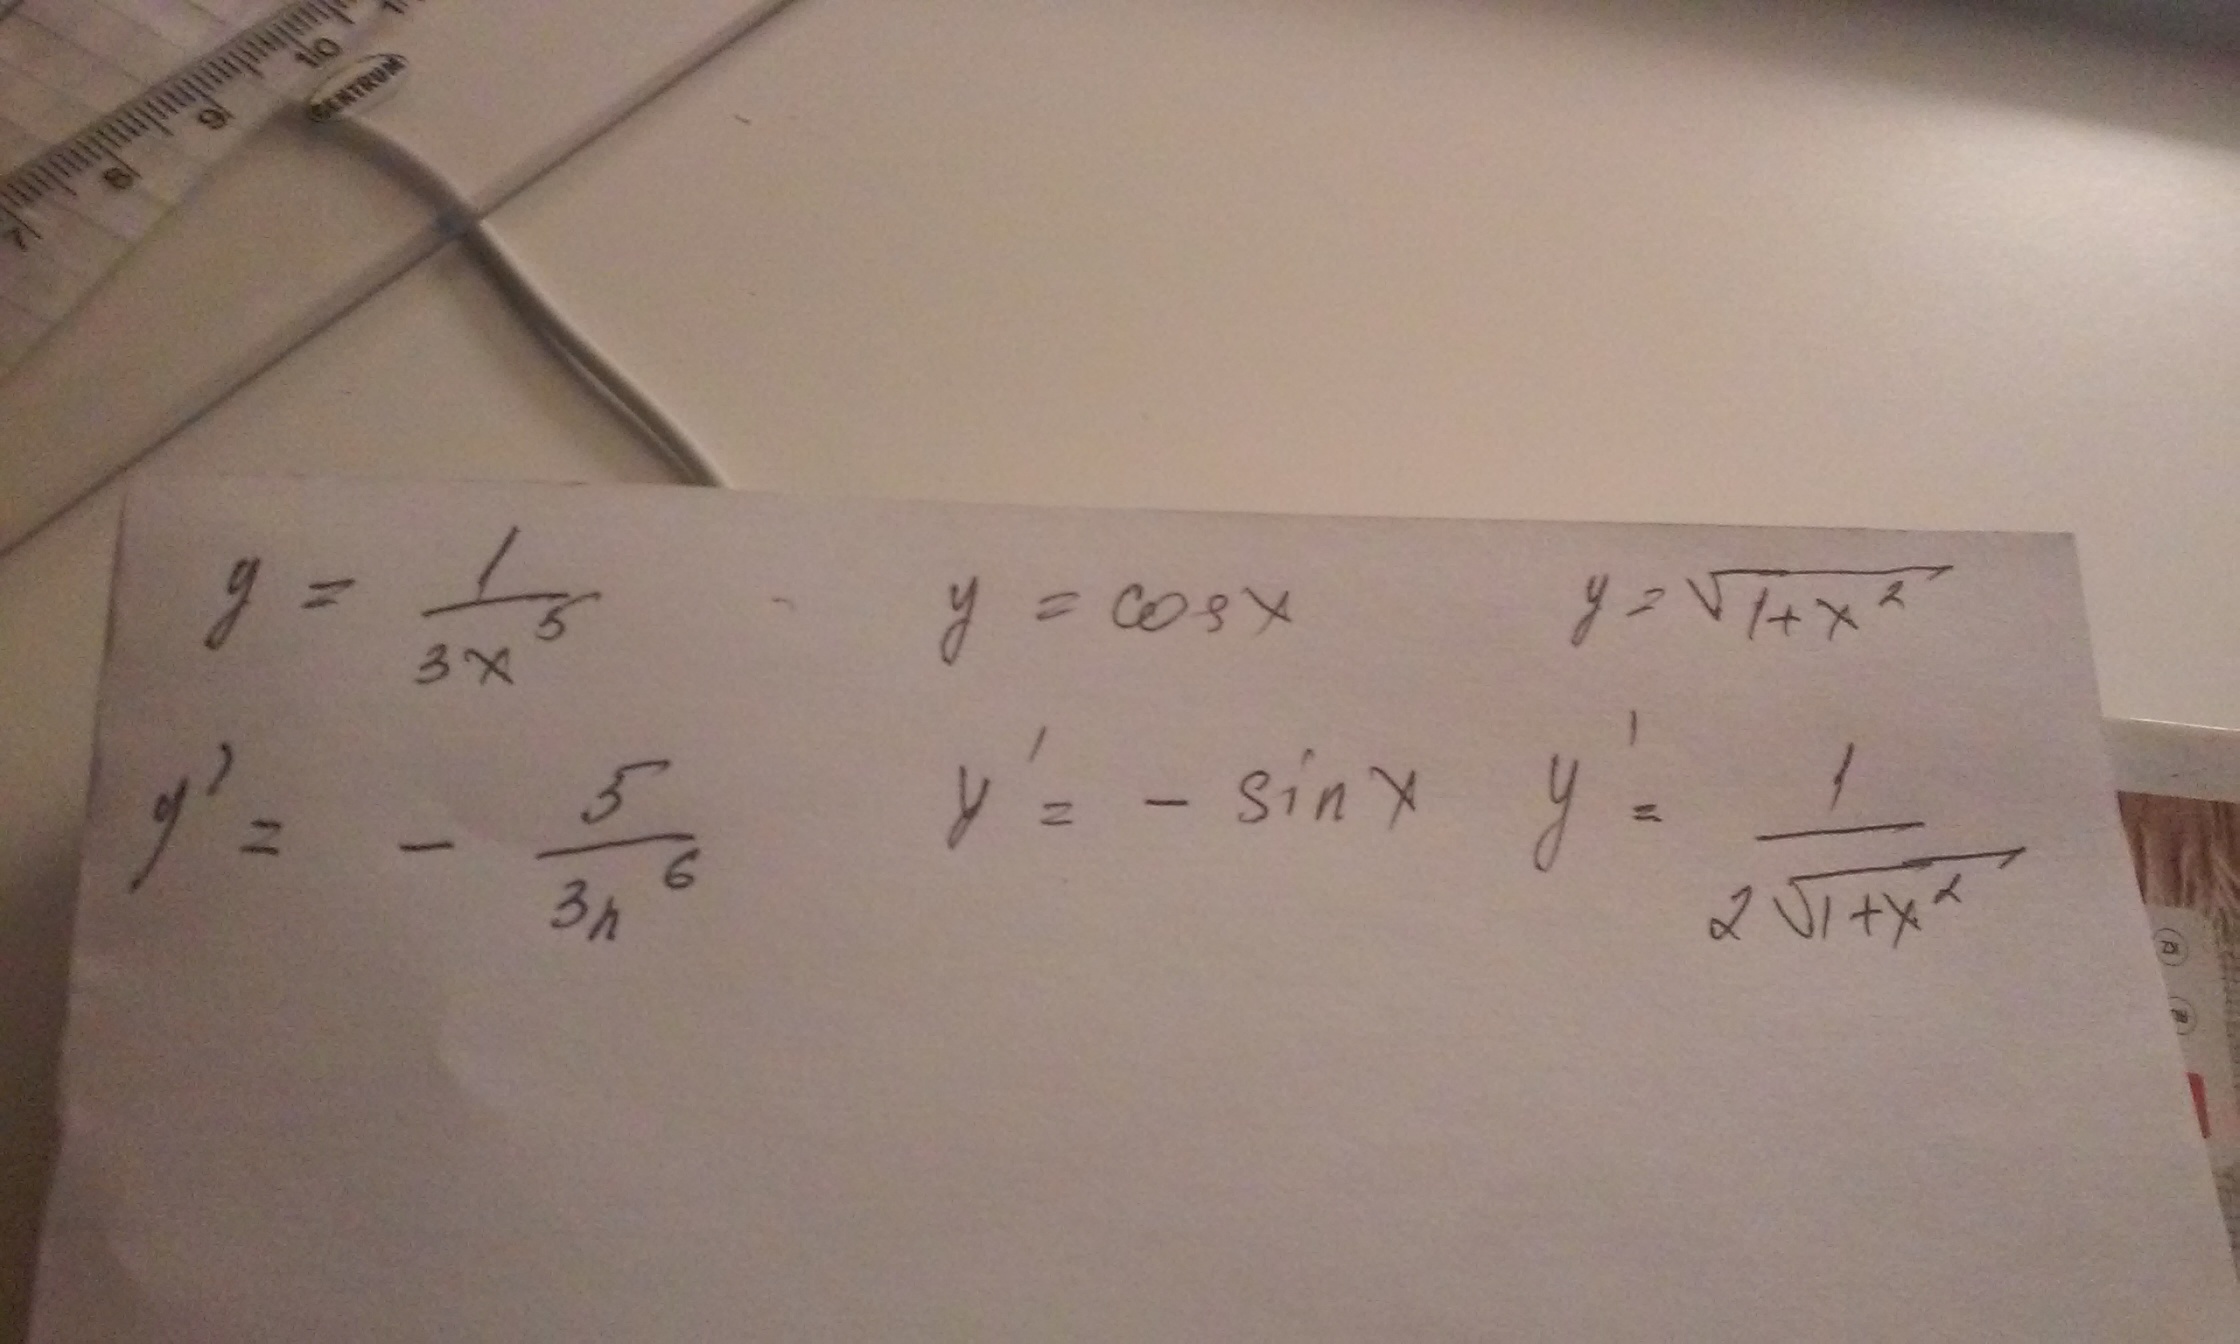 7 8 9 10
CENTRUM
y = 1/(3x^5) y = cosx y = √(1+x^2)
y' = - 5/(3n^6) y' = - sinx y' = 1/(2√(1+x^2))